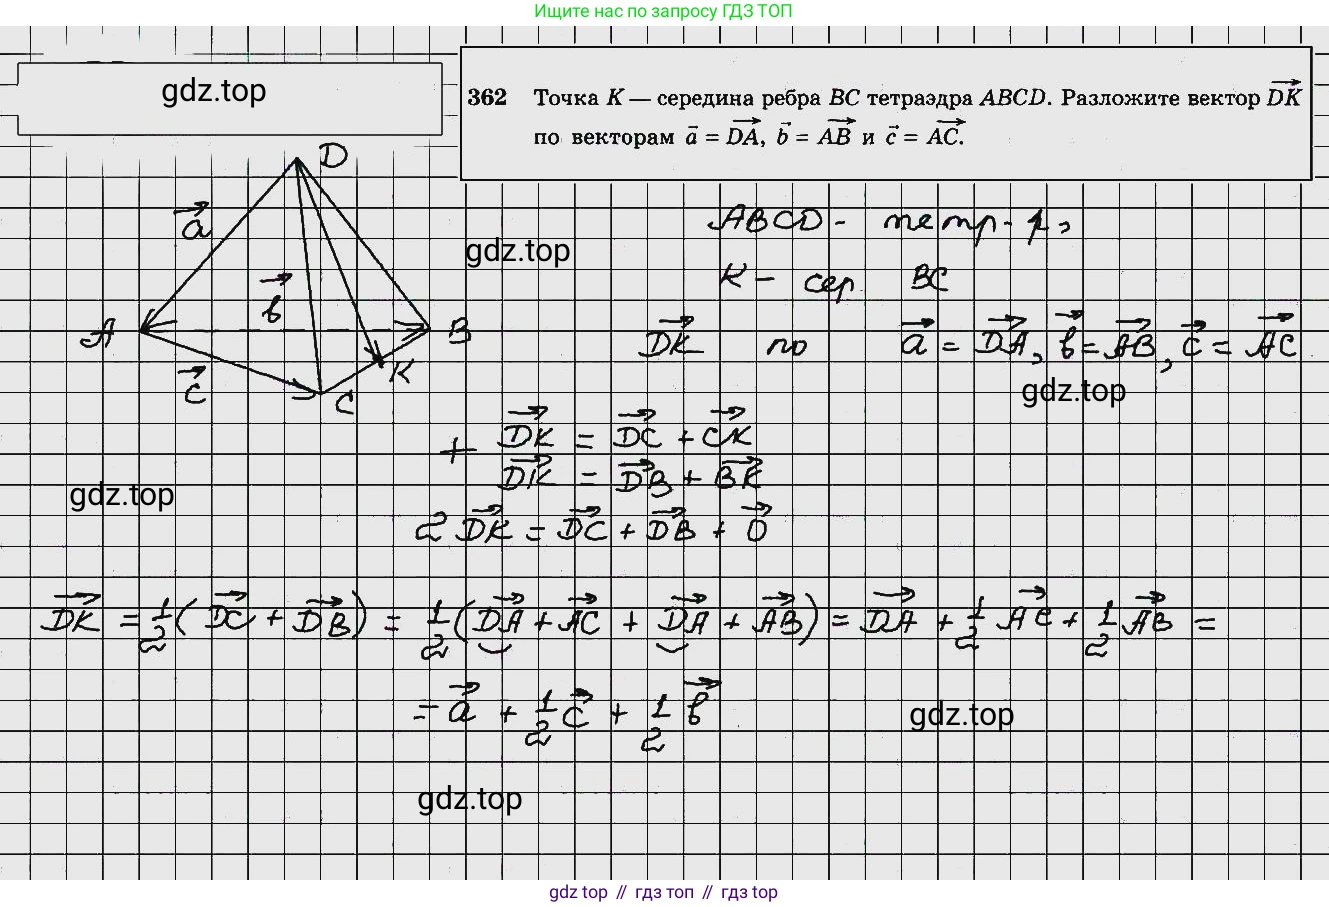 Ищите нас по запросу ГДЗ ТОП
gdz.top
362 Точка K — середина ребра BC тетраэдра ABCD. Разложите вектор DK→
по векторам a→ = DA→, b→ = AB→ и c→ = AC→.
D
a→
b→
A
B
c→
K
C
ABCD - тетр-р,
gdz.top
K - сер BC
DK→ по a→ = DA→, b→ = AB→, c→ = AC→
gdz.top
+ DK→ = DC→ + CK→
DK→ = DB→ + BK→
gdz.top
2 DK→ = DC→ + DB→ + 0→
DK→ = 1/2 (DC→ + DB→) = 1/2 (DA→ + AC→ + DA→ + AB→) = DA→ + 1/2 AC→ + 1/2 AB→ =
= a→ + 1/2 c→ + 1/2 b→
gdz.top
gdz.top
gdz top // гдз топ // гdz top